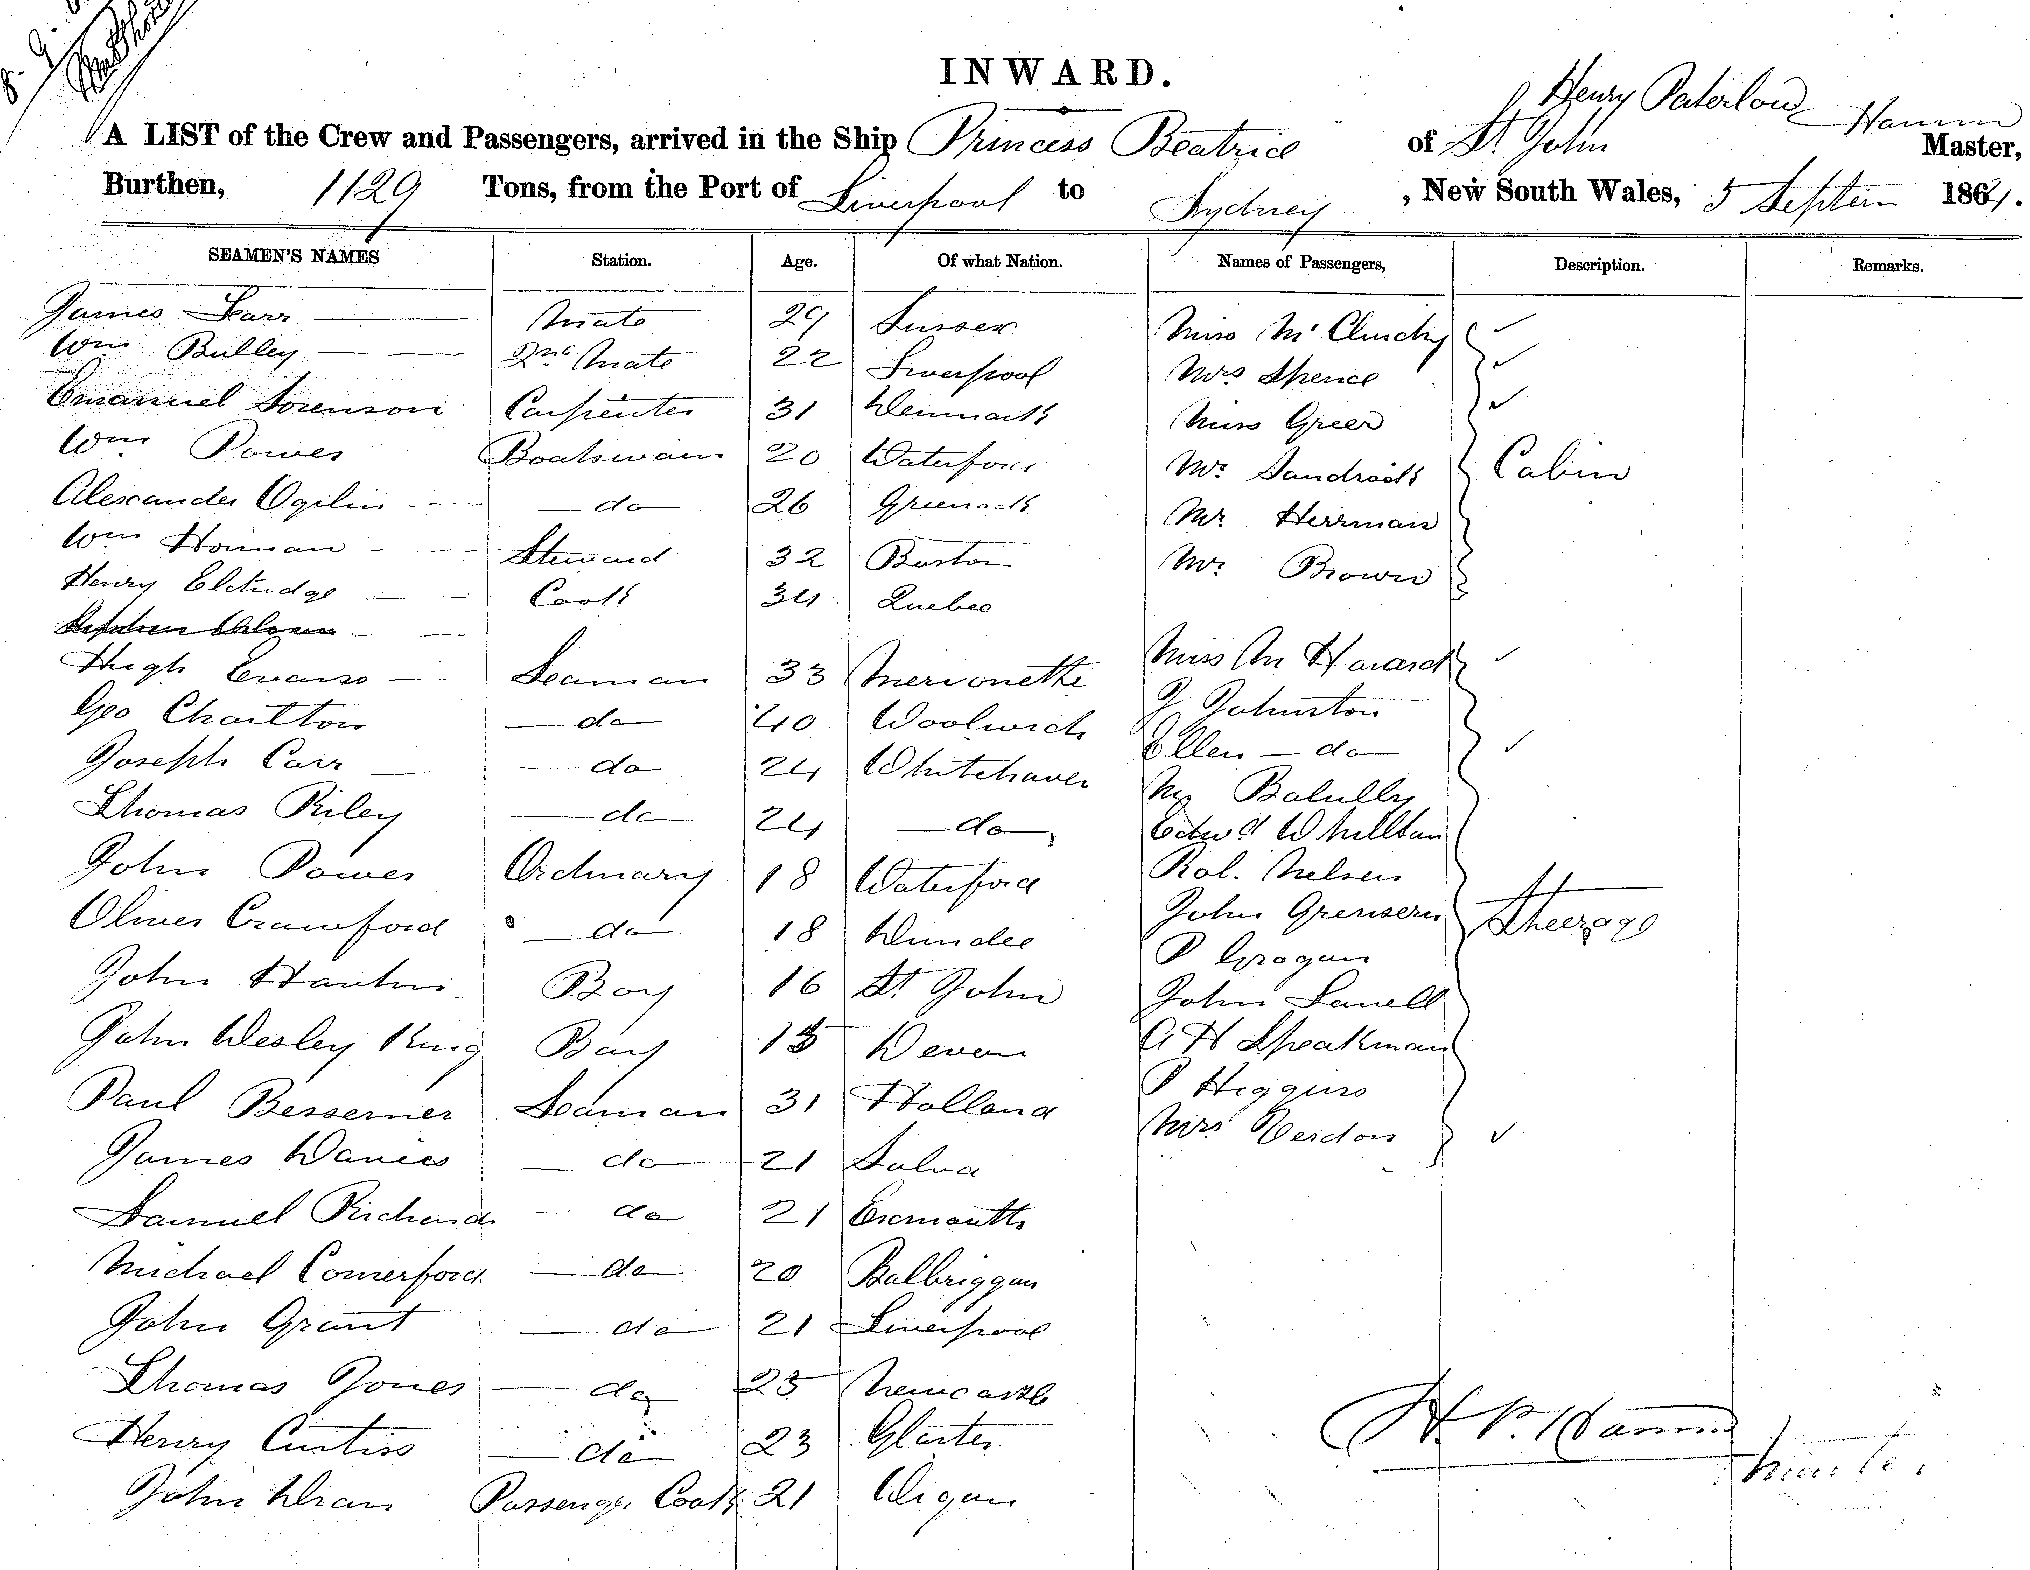 INWARD.
Henry Paterlow Hamm
A LIST of the Crew and Passengers, arrived in the Ship Princess Beatrice of St. John Master,
Burthen, 1129 Tons, from the Port of Liverpool to Sydney, New South Wales, 5 Septem 1864.
SEAMEN'S NAMES Station. Age. Of what Nation. Names of Passengers, Description. Remarks.
James Mate 29 Sussex Miss McClinchy
Wm Bulley 2nd Mate 22 Liverpool Mrs Spence
Emanuel Sorenson Carpenter 31 Denmark Miss Greer
Wm Power Boatswain 20 Waterford Mr Cabin
Alexander Ogilvi do 26 Greenock Mr Herrman
Wm Homan Steward 32 Boston Mr Brown
Henry Eldridge Cook 34 Quebec
Hugh Evans Seaman 33 Merioneth Miss
Geo Charlton do 40 Woolwich J Johnston
Joseph Carr do 24 Whitehaven Ellen do
Thomas Riley do 24 do
Edwd
John Power Ordinary 18 Waterford Rob. Nelson
Oliver Crawford do 18 Dundee John Steerage
P Grogan
John Boy 16 St John John
John Wesley King Boy 15 Devon A H Speakman
P Higgins
Paul Bessemer Seaman 31 Holland Mrs Verdon
James Davies do 21 Solva
Samuel Richards do 21 Exmouth
Michael Comerford do 20 Balbriggan
John Grant do 21 Liverpool
Thomas Jones do 25 Newcastle
Henry Curtiss do 23 Gloster H. P. Hamm
John Passenger Cook 21 Wigan